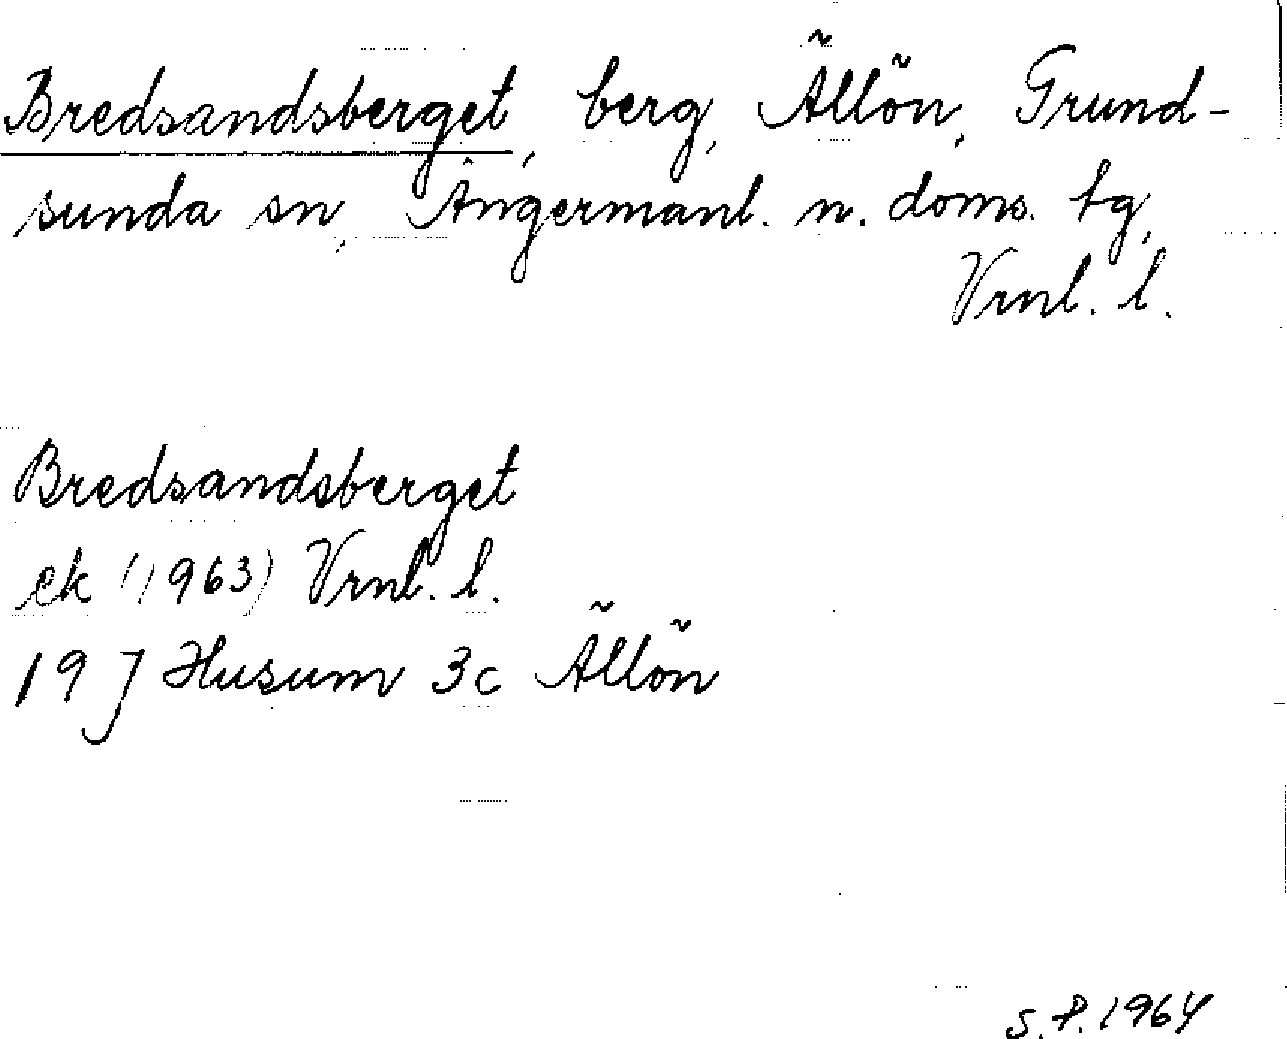 Bredsandsberget, berg, Ällön, Grund-
sunda sn, Ångermanl. n. doms. tg,
Vrnl. l.
Bredsandsberget
ek (1963) Vrnl. l.
19 J Husum 3c Ällön
S.P. 1964